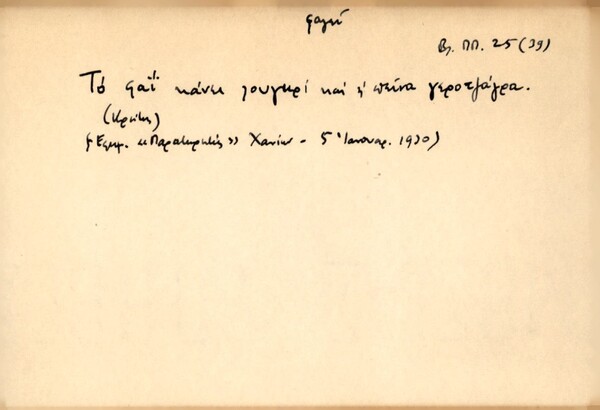 φαγί
Βλ. ΠΠ. 25 (39)
Τό φαΐ κάνει λουγαρί καί ἡ πείνα γεροτζάγρα.
(Κρήτης)
(Ἐφημ. «Παρατηρητής» Χανίων - 5 Ἰανουαρ. 1930)